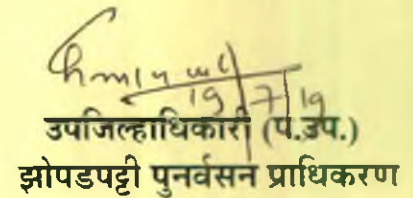 19/7/19
उपजिल्हाधिकारी (प.उप.)
झोपडपट्टी पुनर्वसन प्राधिकरण